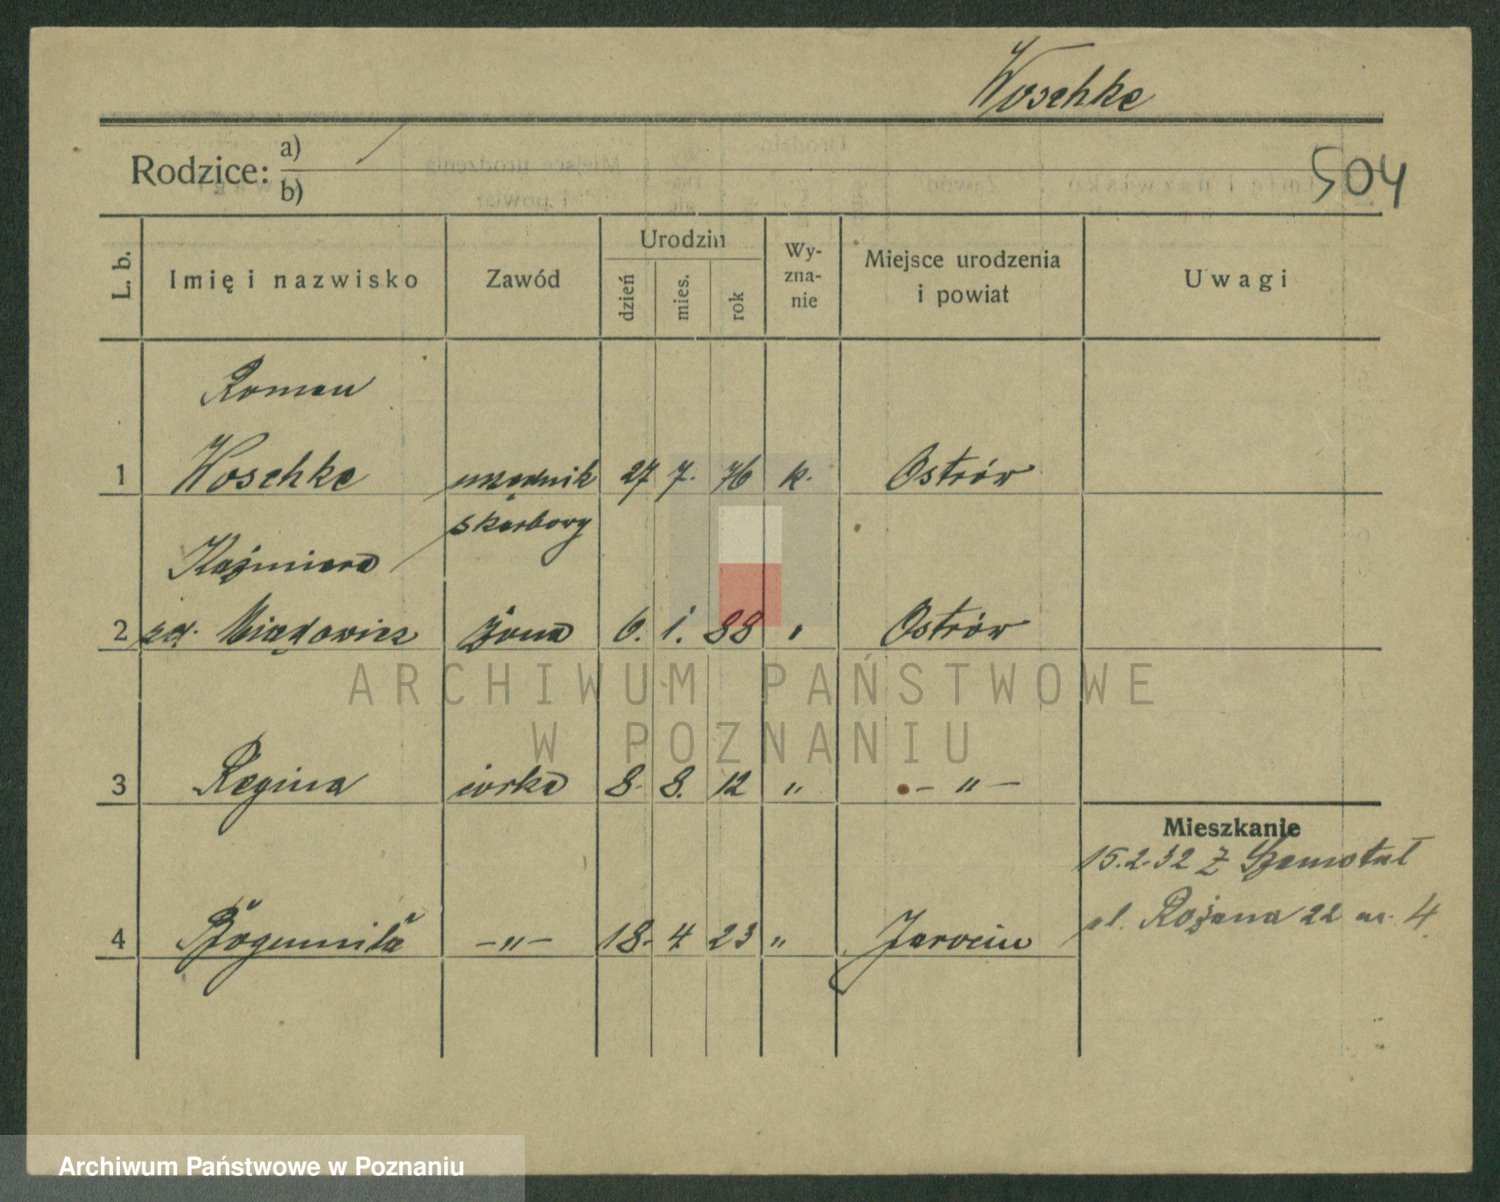 Woschke
Rodzice: a)
b)
504
L. b. Imię i nazwisko Zawód Urodzin dzień mies. rok Wy-zna-nie Miejsce urodzenia i powiat Uwagi
Roman
1 Woschke urzędnik 27 7. 76 k. Ostrów
skarbowy
Kaźmiera
2 zd. żona 6. 1. 88 " Ostrów
ARCHIWUM PAŃSTWOWE
W POZNANIU
3 Regina córka 8. 8. 12 " - " -
Mieszkanie
15.2.32 z Szamotuł
4 Bogumiła - " - 18. 4 23 " Jarocin
ul. Różana 22 m. 4
Archiwum Państwowe w Poznaniu